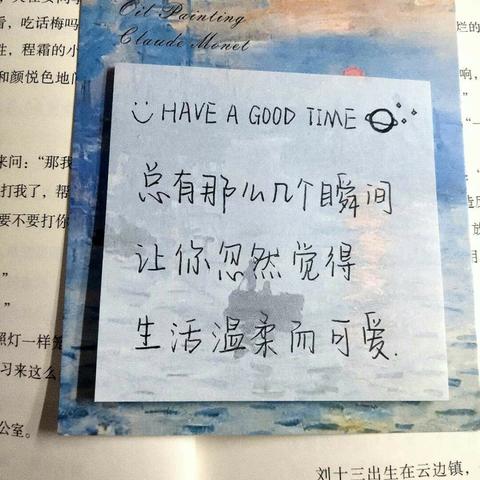 Oil Painting
Claude Monet
HAVE A GOOD TIME
总有那么几个瞬间
让你忽然觉得
生活温柔而可爱.
看,吃话梅吗
生,程霜的小
和颜悦色地
来问:“那我
打我了,帮
要不要打你
”
”
照灯一样
习来这么
公室。
烂的
响,
”
“
刘十三出生在云边镇,